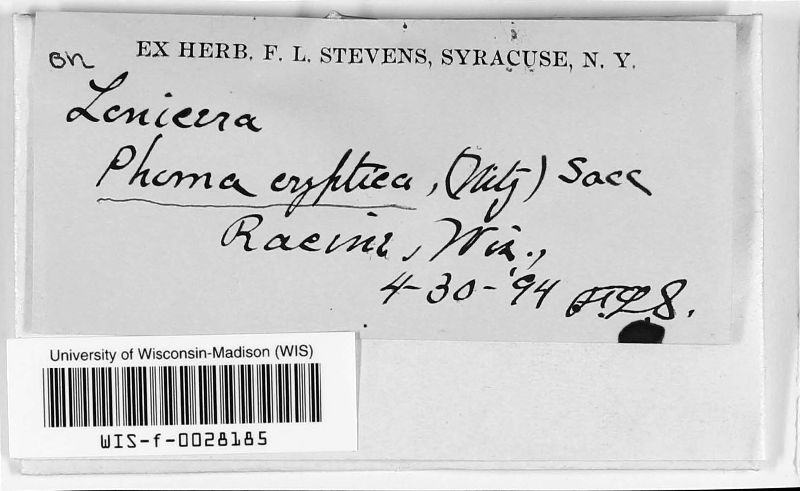 EX HERB. F. L. STEVENS, SYRACUSE, N. Y.
on
Lonicera
Phoma cryptica, (Nitz) Sacc
Racine, Wis.,
4-30-'94 F.L.S.
University of Wisconsin-Madison (WIS)
WIS-f-0028185